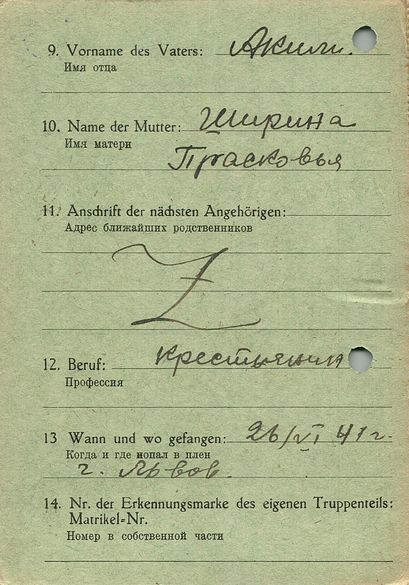 9. Vorname des Vaters: Аким.
Имя отца
10. Name der Mutter: Ширина
Имя матери
Прасковья
11. Anschrift der nächsten Angehörigen:
Адрес ближайших родственников
Z
12. Beruf: крестьянин
Профессия
13 Wann und wo gefangen: 26/VI 41 г.
Когда и где попал в плен
г. Львов.
14. Nr. der Erkennungsmarke des eigenen Truppenteils:
Matrikel=Nr.
Номер в собственной части